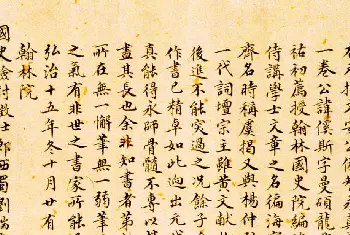 一卷公諱傒斯字曼碩龍
祐初薦授翰林國史院編
侍講學士文章之名徧海
齊名時稱虞揭又與楊仲
一代詞壇宗主雖黃文獻
後進不能突過之況餘子
作書已精卓如此迥出元
真能得永師骨髓不專以
盡其長也余非知書者第
所在無一懈筆無一弱筆
之氣有非世之書家所能
弘治十五年冬十月廿有
翰林院
國史檢討徵士郎西蜀劉瑞